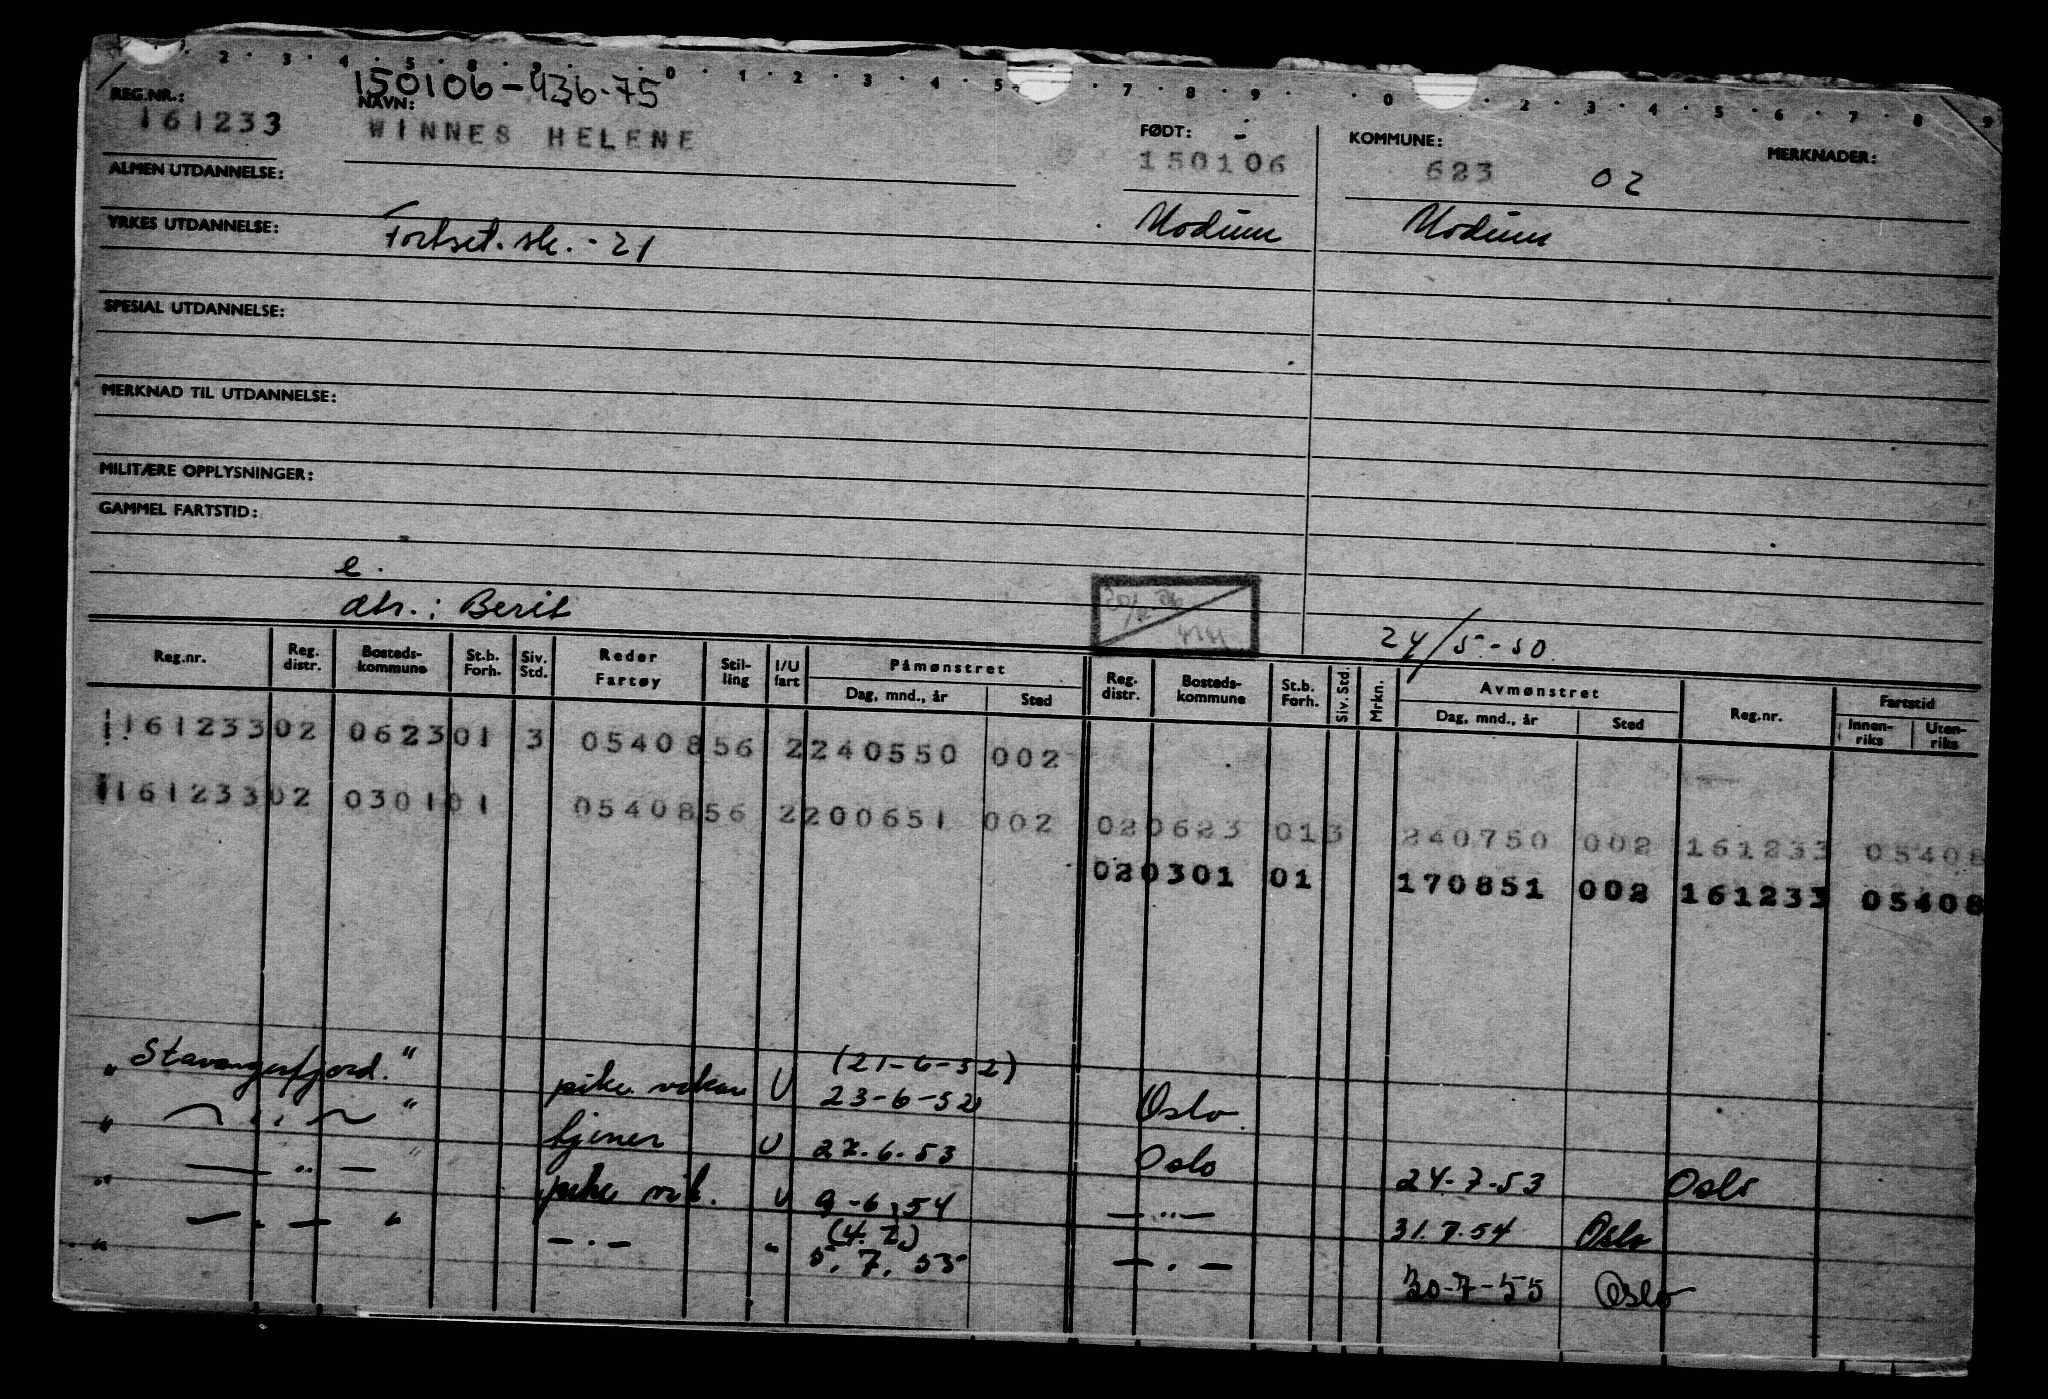 2 3 4 5 8 9 0 1 2 3 4 5 7 8 9 0 2 3 4 5 6 7 8 9
150106-436-75
REG.NR.: NAVN: FØDT: KOMMUNE: MERKNADER:
161233 WINNES HELENE 150106 623 02
ALMEN UTDANNELSE:
YRKES UTDANNELSE: Fortset.sk. - 21 Modum Modum
SPESIAL UTDANNELSE:
MERKNAD TIL UTDANNELSE:
MILITÆRE OPPLYSNINGER:
GAMMEL FARTSTID:
e.
dtr.: Berit
24/5-50
Reg.nr. Reg. distr. Bosteds-kommune St.b. Forh. Siv. Std. Reder Fartøy Stil-ling I/U fart Påmønstret Dag, mnd., år Sted Reg. distr. Bosteds-kommune St.b. Forh. Siv. Std. Mrkn. Avmønstret Dag, mnd., år Sted Reg.nr. Fartstid Innen-riks Uten-riks
16123302 062301 3 0540856 2240550 002
16123302 030101 0540856 2200651 002 020623 013 240750 002 161233 05408
020301 01 170851 002 161233 05408
(21-6-52)
"Stavangerfjord." pike U 23-6-52 Oslo
" — ,, — " U 22.6.53 Oslo 24-7-53 Oslo
" — ,, — " pike vik. U 9-6-54 — ,, — 31.7.54 Oslo
(4.7.)
" — . — " — . — " 5.7.55 — . — 30-7-55 Oslo